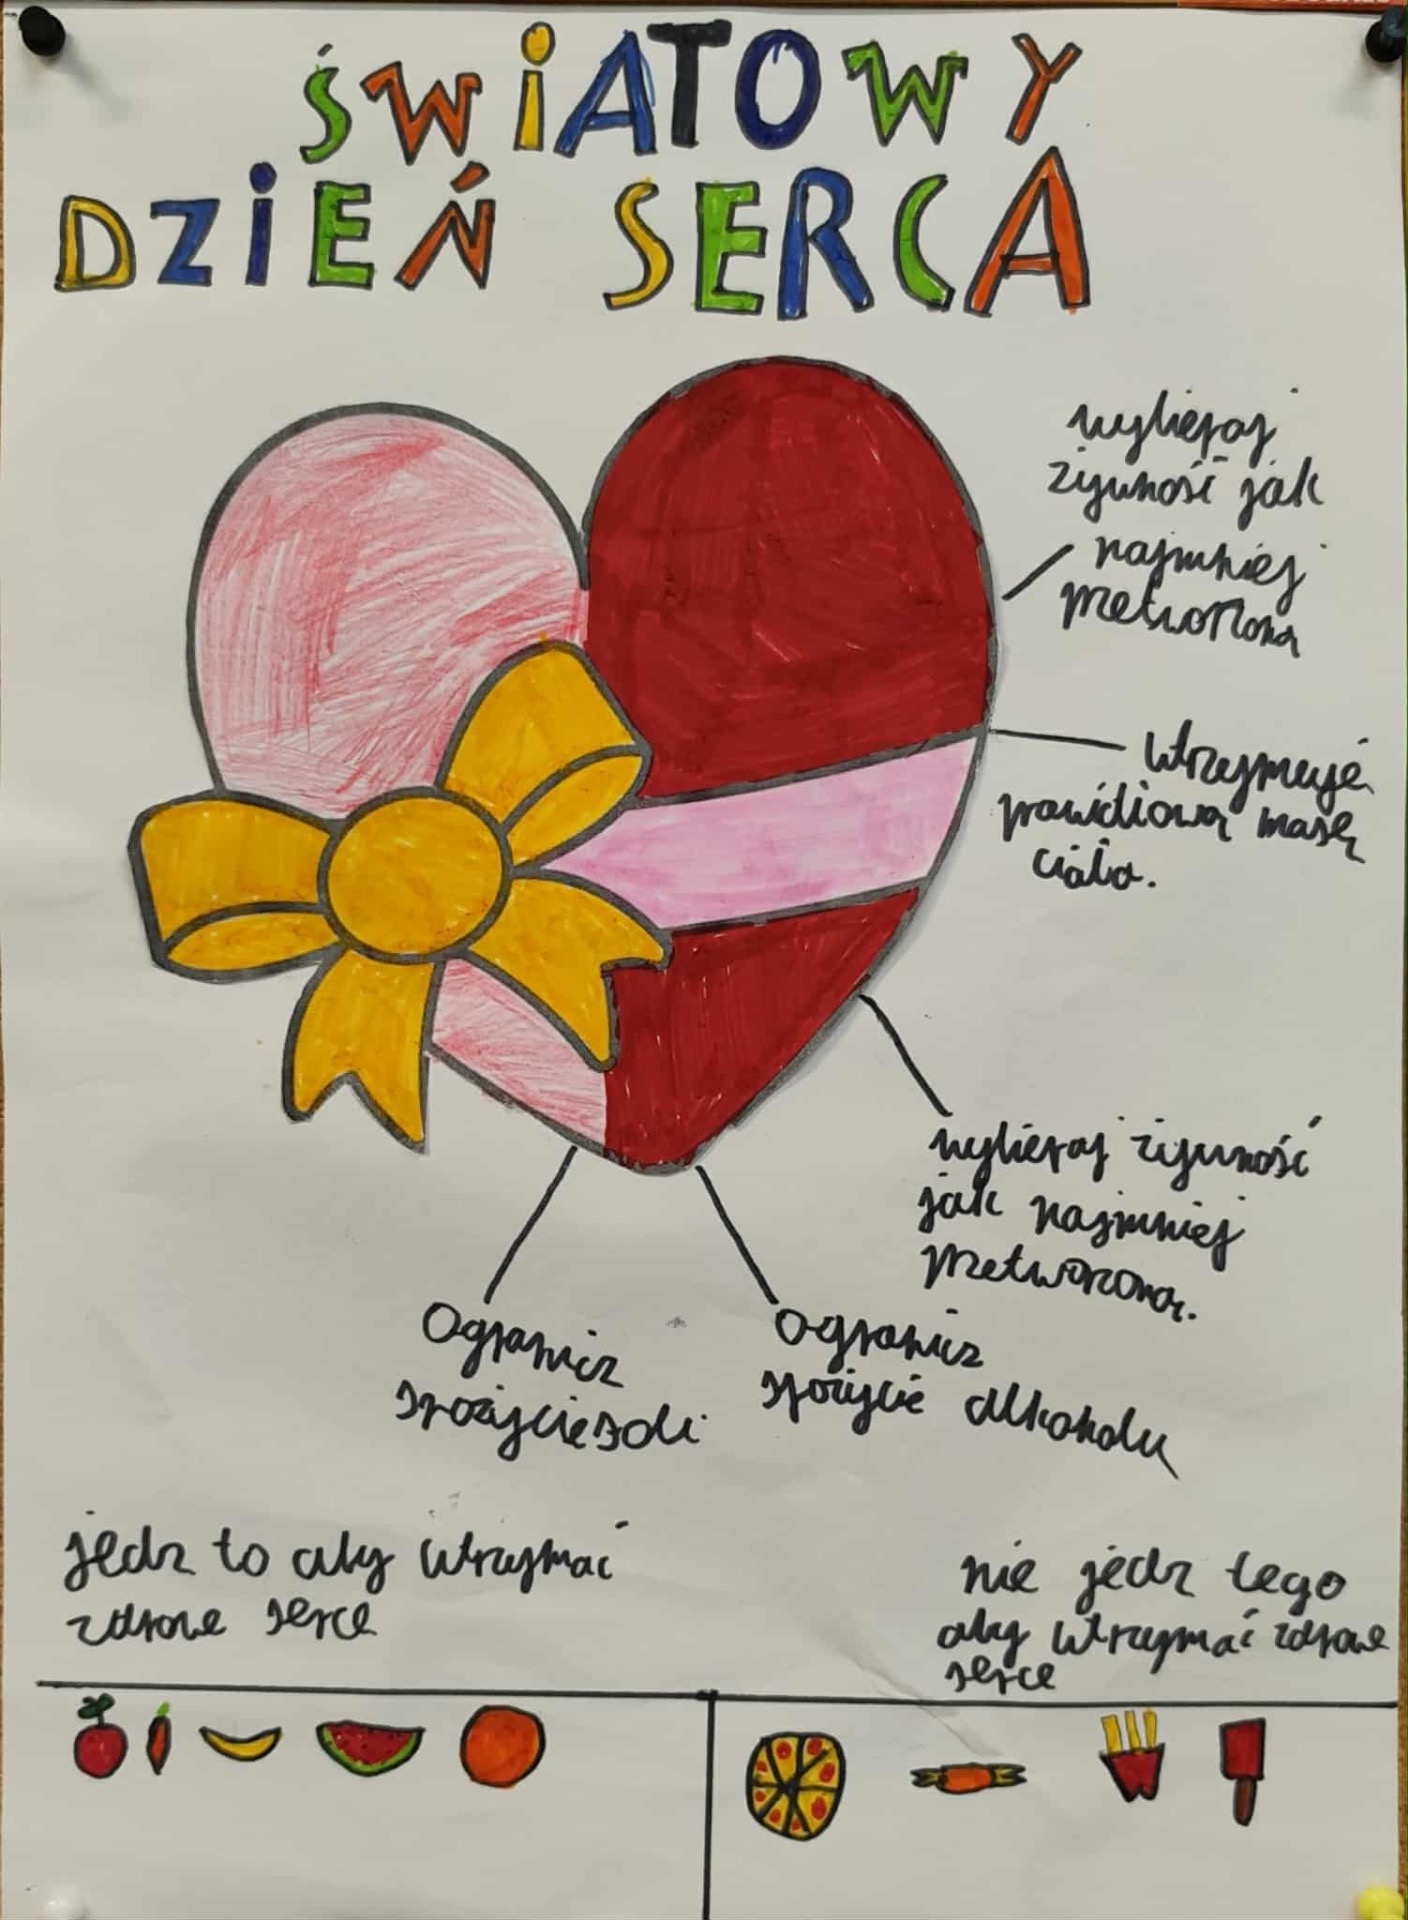 ŚWiATOWY
DZiEŃ SERCA
wybieraj
żywność jak
najmniej
przetworzoną
utrzymuje
prawidłową masę
ciała.
wybieraj żywność
jak najmniej
przetworzoną.
Ogranicz
spożycie soli
Ogranicz
spożycie alkoholu
jedz to aby utrzymać
zdrowe serce
nie jedz tego
aby utrzymać zdrowe
serce